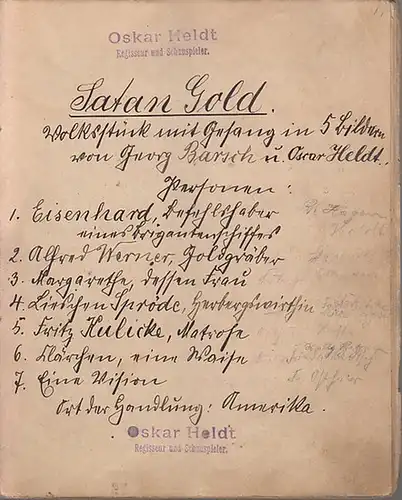 Oskar Heldt
Regisseur und Schauspieler.
Satan Gold.
Volksstück mit Gesang in 5 Bildern
von Georg Barsch u. Oscar Heldt.
Personen:
1. Eisenhard, Befehlshaber
eines Brigantenschiffes
2. Alfred Werner, Goldgräber
3. Margarethe, dessen Frau
4. Lieschen Spröde, Herbergswirthin
5. Fritz Kulicke, Matrose
6. Klärchen, eine Waise
7. Eine Vision
Ort der Handlung: Amerika.
Oskar Heldt
Regisseur und Schauspieler.